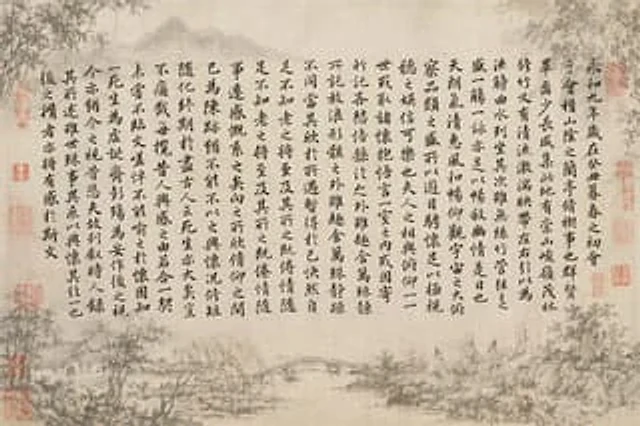 永和九年歲在癸丑暮春之初會
會稽山陰之蘭亭脩禊事也群賢
畢至少長咸集此地有崇山峻嶺茂林
脩竹又有清流激湍映帶左右引以為
流觴曲水列坐其次雖無絲竹管絃之
盛一觴一詠亦足以暢敘幽情是日也
天朗氣清惠風和暢仰觀宇宙之大俯
察品類之盛所以遊目騁懷足以極視
聽之娛信可樂也夫人之相與俯仰一
世或取諸懷抱悟言一室之內或因寄
之外雖趣舍萬殊靜
所託放浪形骸之外雖趣舍萬殊靜躁
不同當其欣於所遇暫得於己快然自
足不知老之將至及其所之既倦情隨
足不知老之將至及其所之既倦情隨
事遷感慨係之矣向之所欣俯仰之間
已為陳跡猶不能不以之興懷況脩短
隨化終期於盡古人云死生亦大矣豈
不痛哉每攬昔人興感之由若合一契
未嘗不臨文嗟悼不能喻之於懷固知
一死生為虛誕齊彭殤為妄作後之視
今亦猶今之視昔悲夫故列敘時人錄
其所述雖世殊事異所以興懷其致一也
後之攬者亦將有感於斯文